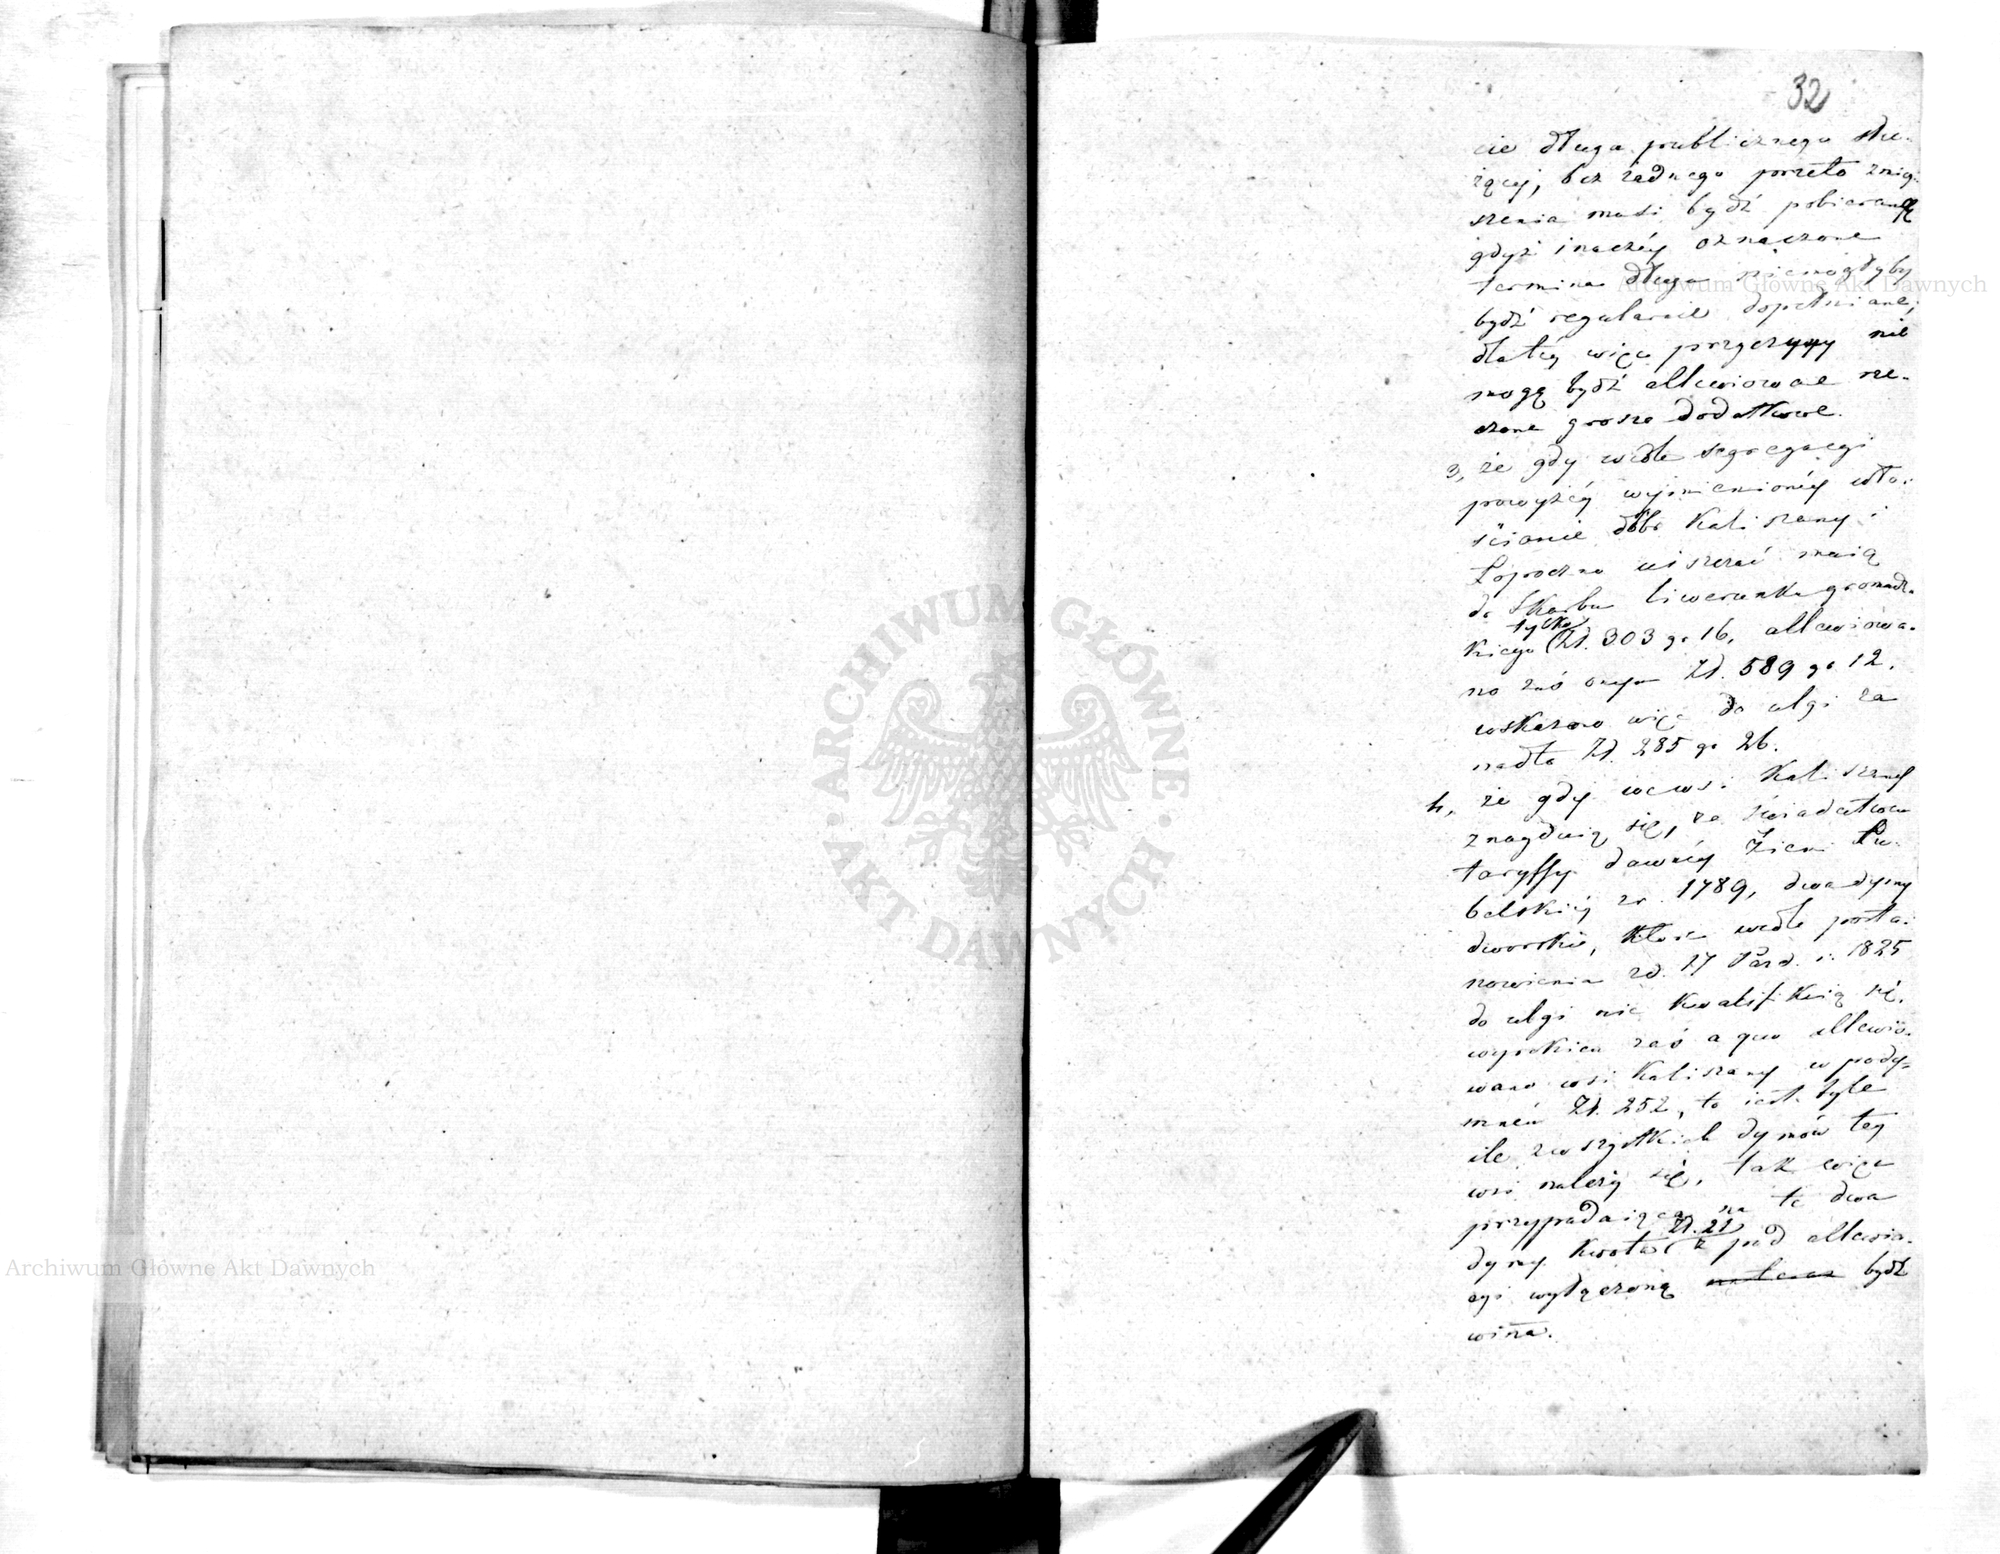 32
cie długu publicznego słu-
żącej, bez żadnego przeto zmięj-
szenia musi bydź pobieraną
gdyż inaczéy oznaczone
termina długu niemogłyby
bydź regularnie dopełniane,
dla téy więc przyczyny nie
mogą bydź allewiowane rze-
czone grosze dodatkowe.
3, że gdy wedle segregacyi
powyżéy wymienionéy wło-
ścianie dóbr Kaliszany i
Łopoczno uiszczać maią
do Skarbu liwerunku gromadz-
kiego tylko Zł. 303 gr 16, allewiowa-
no zaś onym Zł. 589 gr 12,
wskazano więc do ulgi za
nadto Zł. 285 gr 26.
4, że gdy we wsi Kaliszany
znayduią się, ze świadectwa
taryffy dawnéy Ziemi Lu-
belskiéy z r. 1789, dwa dymy
dworskie, które wedle posta-
nowienia z d. 17 Paźd. r. 1825
do ulgi nie kwalifikuią się,
wyrokiem zaś a quo allewio-
wano wsi Kaliszany w pody-
mném Zł. 252, to iest tyle
ile z wszystkich dymów tey
wsi należy się, tak więc
przypadaiąca na te dwa
dymy kwota Zł. 21 z pod allewia-
cyi wyłączoną bydź
winna.
Archiwum Główne Akt Dawnych
Archiwum Główne Akt Dawnych
ARCHIWUM GŁÓWNE · AKT DAWNYCH ·